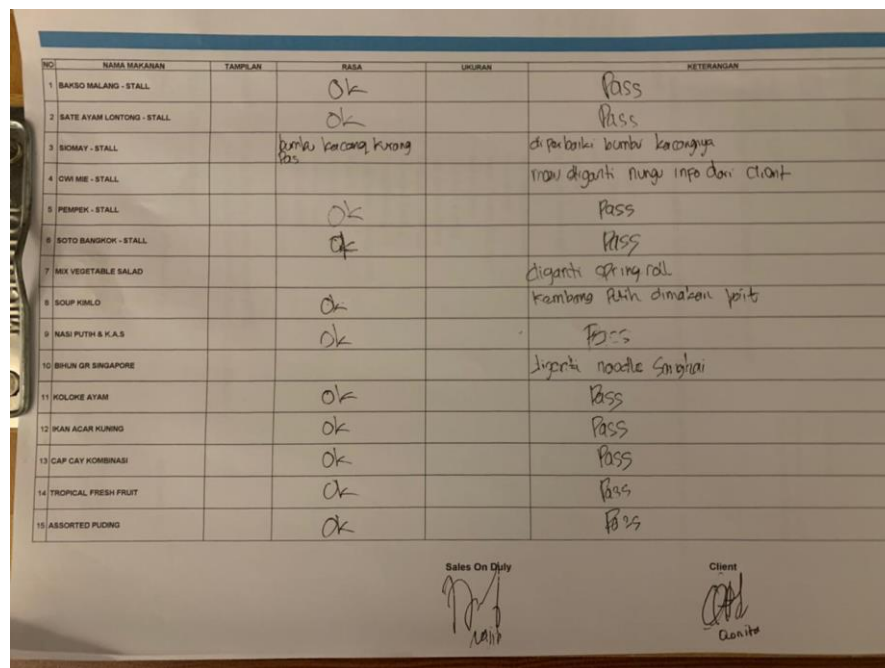 NO NAMA MAKANAN TAMPILAN RASA UKURAN KETERANGAN
1 BAKSO MALANG - STALL Ok Pass
2 SATE AYAM LONTONG - STALL Ok Pass
3 SIOMAY - STALL bumbu kacang kurang diperbaiki bumbu kacangnya
Pas
4 CWI MIE - STALL mau diganti nungu info dari Client
5 PEMPEK - STALL Ok Pass
6 SOTO BANGKOK - STALL Ok Pass
7 MIX VEGETABLE SALAD diganti spring roll
8 SOUP KIMLO Ok kembang Putih
9 NASI PUTIH & K.A.S Ok Pass
10 BIHUN GR SINGAPORE diganti noodle
11 KOLOKE AYAM Ok Pass
12 IKAN ACAR KUNING Ok Pass
13 CAP CAY KOMBINASI Ok Pass
14 TROPICAL FRESH FRUIT Ok Pass
15 ASSORTED PUDING Ok Pass
Sales On Duty Client